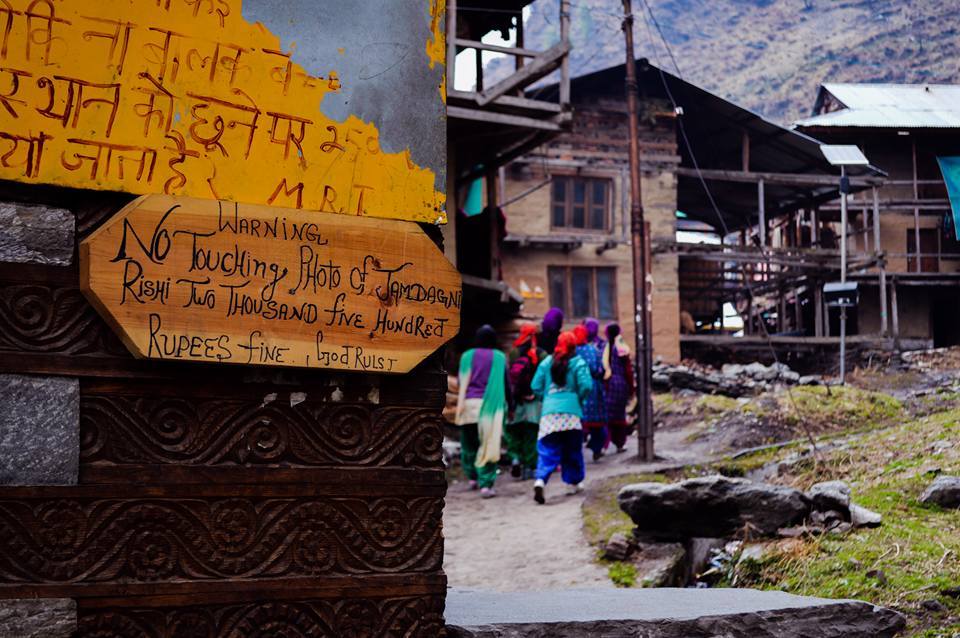 कि ना बालक
स्थान को छूने पर 250
या जाता है
M R T
WARNING
No Touching, Photo of JAMDAGNI
Rishi Two Thousand five Hundred
Rupees fine.., God Ruls